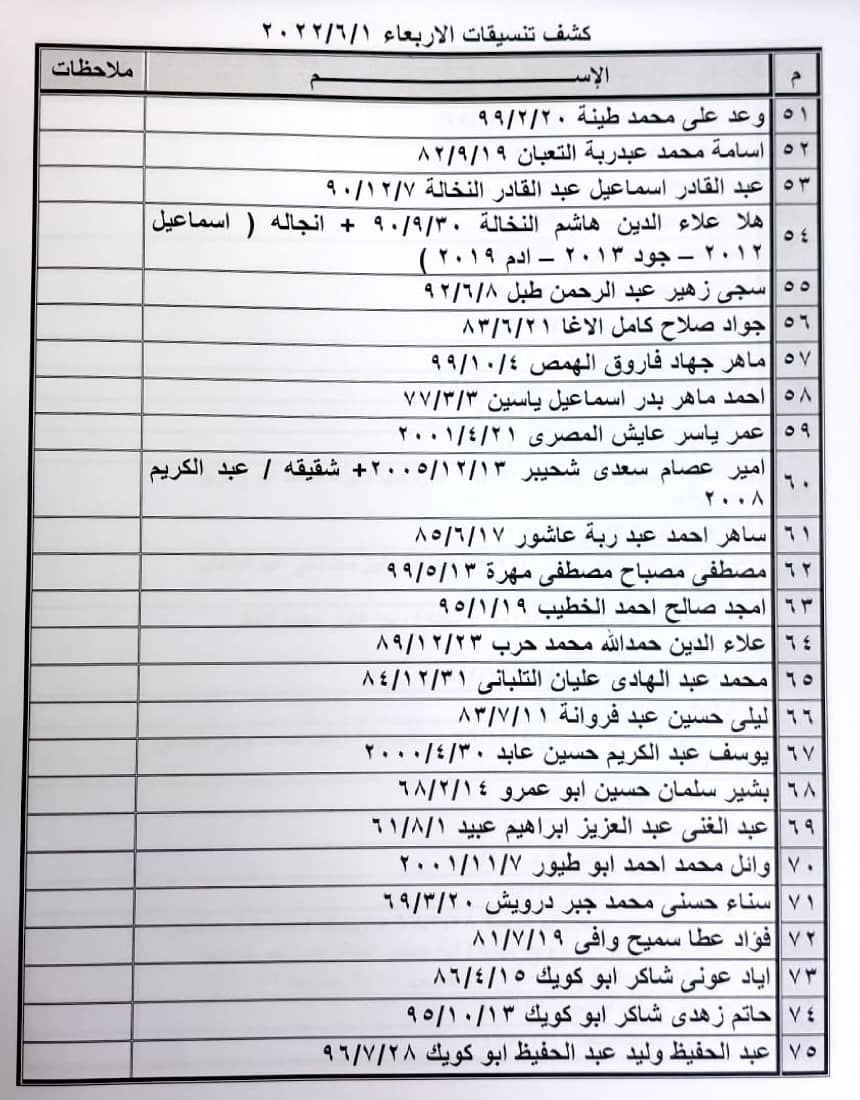 كشف تنسيقات الاربعاء ٢٠٢٢/٦/١
م الإســـــــــــــم ملاحظات
٥١ وعد على محمد طينة ٩٩/٢/٢٠
٥٢ اسامة محمد عبدربة التعبان ٨٢/٩/١٩
٥٣ عبد القادر اسماعيل عبد القادر النخالة ٩٠/١٢/٧
٥٤ هلا علاء الدين هاشم النخالة ٩٠/٩/٣٠ + انجاله ( اسماعيل
٢٠١٢ – جود ٢٠١٣ – ادم ٢٠١٩ )
٥٥ سجى زهير عبد الرحمن طبل ٩٢/٦/٨
٥٦ جواد صلاح كامل الاغا ٨٣/٦/٢١
٥٧ ماهر جهاد فاروق الهمص ٩٩/١٠/٤
٥٨ احمد ماهر بدر اسماعيل ياسين ٧٧/٣/٣
٥٩ عمر ياسر عايش المصرى ٢٠٠١/٤/٢١
٦٠ امير عصام سعدى شحيبر ٢٠٠٥/١٢/١٣+ شقيقه / عبد الكريم
٢٠٠٨
٦١ ساهر احمد عبد ربة عاشور ٨٥/٦/١٧
٦٢ مصطفى مصباح مصطفى مهرة ٩٩/٥/١٣
٦٣ امجد صالح احمد الخطيب ٩٥/١/١٩
٦٤ علاء الدين حمدالله محمد حرب ٨٩/١٢/٢٣
٦٥ محمد عبد الهادى عليان التلبانى ٨٤/١٢/٣١
٦٦ ليلى حسين عبد فروانة ٨٣/٧/١١
٦٧ يوسف عبد الكريم حسين عابد ٢٠٠٠/٤/٣٠
٦٨ بشير سلمان حسين ابو عمرو ٦٨/٢/١٤
٦٩ عبد الغنى عبد العزيز ابراهيم عبيد ٦١/٨/١
٧٠ وائل محمد احمد ابو طيور ٢٠٠١/١١/٧
٧١ سناء حسنى محمد جبر درويش ٦٩/٣/٢٠
٧٢ فؤاد عطا سميح وافى ٨١/٧/١٩
٧٣ اياد عونى شاكر ابو كويك ٨٦/٤/١٥
٧٤ حاتم زهدى شاكر ابو كويك ٩٥/١٠/١٣
٧٥ عبد الحفيظ وليد عبد الحفيظ ابو كويك ٩٦/٧/٢٨